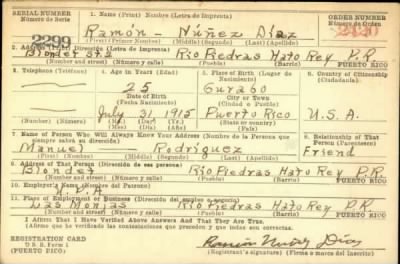 SERIAL NUMBER
Número de Serie
1. Name (Print) Nombre (Letra de Imprenta)
ORDER NUMBER
Número de Orden
2299
Ramón - Núñez Díaz
2420
(First) (Primer Nombre) (Middle) (Segundo) (Last) (Apellido)
2. Address (Print) Dirección (Letra de Imprenta)
Blondet St. 2 Río Piedras Hato Rey P.R.
(Number and street) (Número y calle) (Town) (Ciudad o Pueblo) PUERTO RICO
3. Telephone (Teléfono)
4. Age in Years (Edad)
5. Place of Birth (Lugar de Nacimiento)
6. Country of Citizenship (Ciudadanía)
25
Gurabo
Date of Birth
(Fecha Nacimiento)
City or Town
(Ciudad o Pueblo)
July 31 1915
Puerto Rico
U.S.A.
(Number) (Número)
(Mo.) (Day) (Yr.)
(Mes) (Día) (Año)
(State or country)
7. Name of Person Who Will Always Know Your Address (Nombre de la Persona que siempre sepa su dirección)
8. Relationship of That Person (Parentesco)
Manuel - Rodríguez
Friend
(First) (Nombre) (Middle) (Segundo) (Last) (Apellido)
9. Address of That Person (Dirección de esa persona)
Blondet Río Piedras Hato Rey P.R.
(Number and street) (Número y calle) (Town) (Ciudad o Pueblo) PUERTO RICO
10. Employer's Name (Nombre del Patrono)
11. Place of Employment or Business (Dirección del empleo o negocio)
Las Monjas Río Piedras Hato Rey P.R.
(Number and street) (Número y calle) (Town) (Ciudad o Pueblo) PUERTO RICO
I Affirm That I Have Verified Above Answers And That They Are True.
(Afirmo que he verificado las contestaciones que preceden y que todas son correctas).
REGISTRATION CARD
D. S. S. Form 1
(PUERTO RICO)
Ramón Núñez Díaz
(Registrant's signature) (Firma o marca del inscrito)